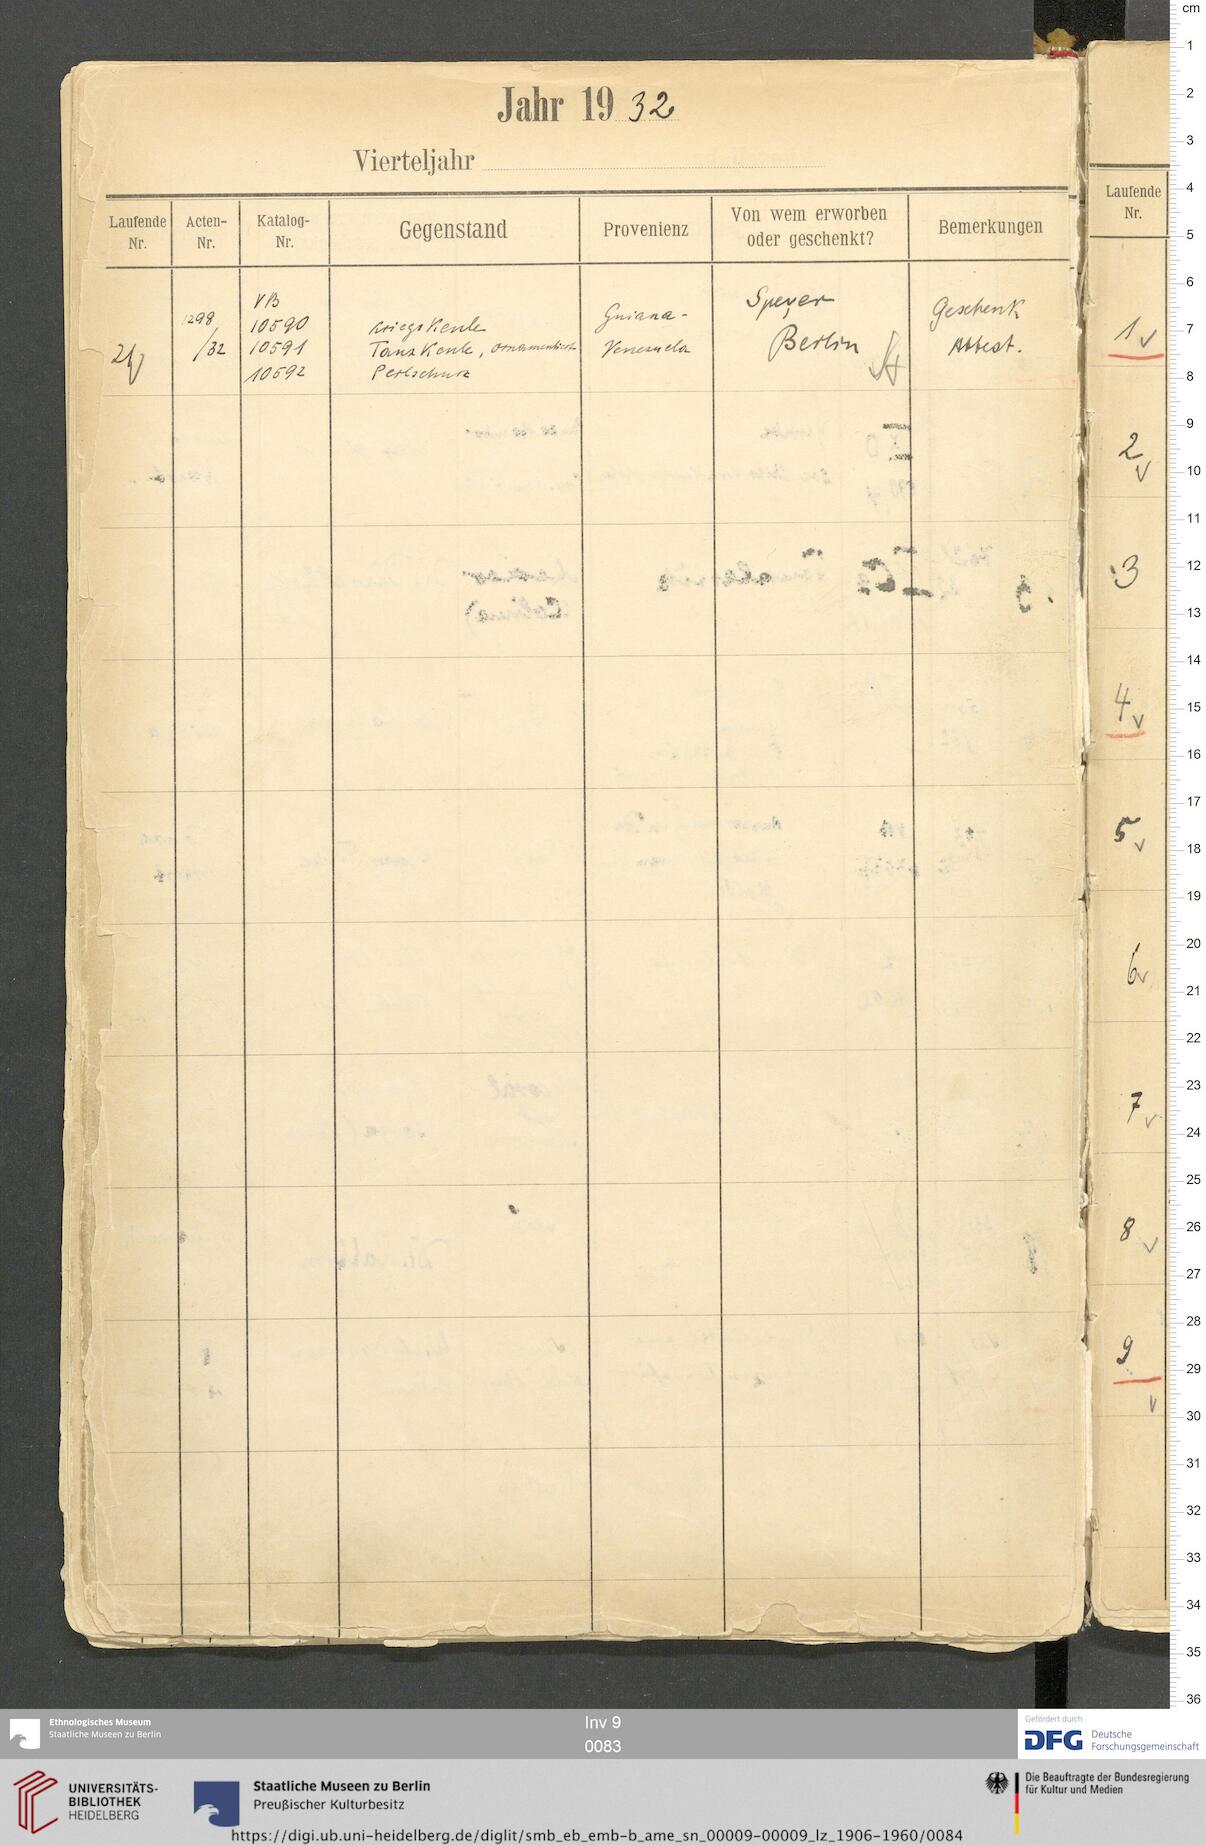 Jahr 19 32
Vierteljahr
Laufende Nr.
Acten-Nr.
Katalog-Nr.
Gegenstand
Provenienz
Von wem erworben oder geschenkt?
Bemerkungen
1298
/32
VB
10590
10591
10592
Kriegskeule
Tanzkeule, ornamentiert
Perlschurz
Guiana-
Venezuela
Speyer
Berlin
Geschenk
Laufende
Nr.
1
2
3
4
5
6
7
8
9
cm
1
2
3
4
5
6
7
8
9
10
11
12
13
14
15
16
17
18
19
20
21
22
23
24
25
26
27
28
29
30
31
32
33
34
35
36
Ethnologisches Museum
Staatliche Museen zu Berlin
Inv 9
0083
Gefördert durch
DFG Deutsche
Forschungsgemeinschaft
UNIVERSITÄTS-
BIBLIOTHEK
HEIDELBERG
Staatliche Museen zu Berlin
Preußischer Kulturbesitz
Die Beauftragte der Bundesregierung
für Kultur und Medien
https://digi.ub.uni-heidelberg.de/diglit/smb_eb_emb-b_ame_sn_00009-00009_lz_1906-1960/0084